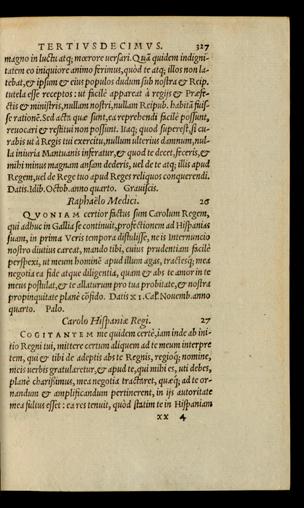 TERTIVSDECIMVS. 327
magno in luctu atq; mœrore uersari. Quã quidem indigni-
tatem eo iniquiore animo ferimus, quòd te atq; illos non la-
tebat, & ipsum & eius populos dudum sub nostra & Reip.
tutela esse receptos: ut facilè appareat à regijs & Præfe-
ctis & ministris, nullam nostri, nullam Reipub. habitã fuis-
se rationẽ. Sed acta quæ sunt, ea reprehendi facilè possunt,
reuocari & restitui non possunt. Itaq; quod superest, si cu-
rabis ut à Regis tui exercitu, nullum ulterius damnum, nul-
la iniuria Mantuanis inferatur, & quod te decet, feceris, &
mihi minus magnam ansam dederis, uel de te atq; illis apud
Regem, uel de Rege tuo apud Reges reliquos conquerendi.
Datis. Idib. Octob. anno quarto. Grauiscis.
Raphaëlo Medici. 26
QVONIAM certior factus sum Carolum Regem,
qui adhuc in Gallia se continuit, profectionem ad Hispanias
suam, in prima Veris tempora distulisse, ne is Internuncio
nostro diutius careat, mando tibi, cuius prudentiam facilè
perspexi, ut meum hominẽ apud illum agas, tractesq; mea
negotia ea fide atque diligentia, quam & abs te amor in te
meus postulat, & te allaturum pro tua probitate, & nostra
propinquitate planè cõfido. Datis XI. Cal. Nouemb. anno
quarto. Palo.
Carolo Hispaniæ Regi. 27
COGITANTEM me quidem certè, iam inde ab ini-
tio Regni tui, mittere certum aliquem ad te meum interpre
tem, qui & tibi de adeptis abs te Regnis, regioq; nomine,
meis uerbis gratularetur, & apud te, qui mihi es, uti debes,
planè charissimus, mea negotia tractaret, quæq; ad te or-
nandum & amplificandum pertinerent, in ijs autoritate
mea fultus esset: ea res tenuit, quòd statim te in Hispaniam
xx 4